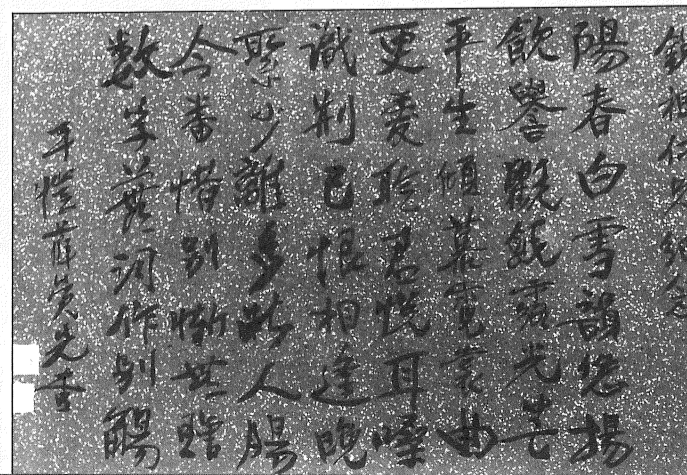 相 兄紀念
陽春白雪韻悠揚
飲譽氍毹露光芒
平生傾慕霓裳曲
更愛聆君悅耳嗓
識荊已恨相逢晚
聚少離多斷人腸
今番惜別慚無贈
數字蕪詞作別觴